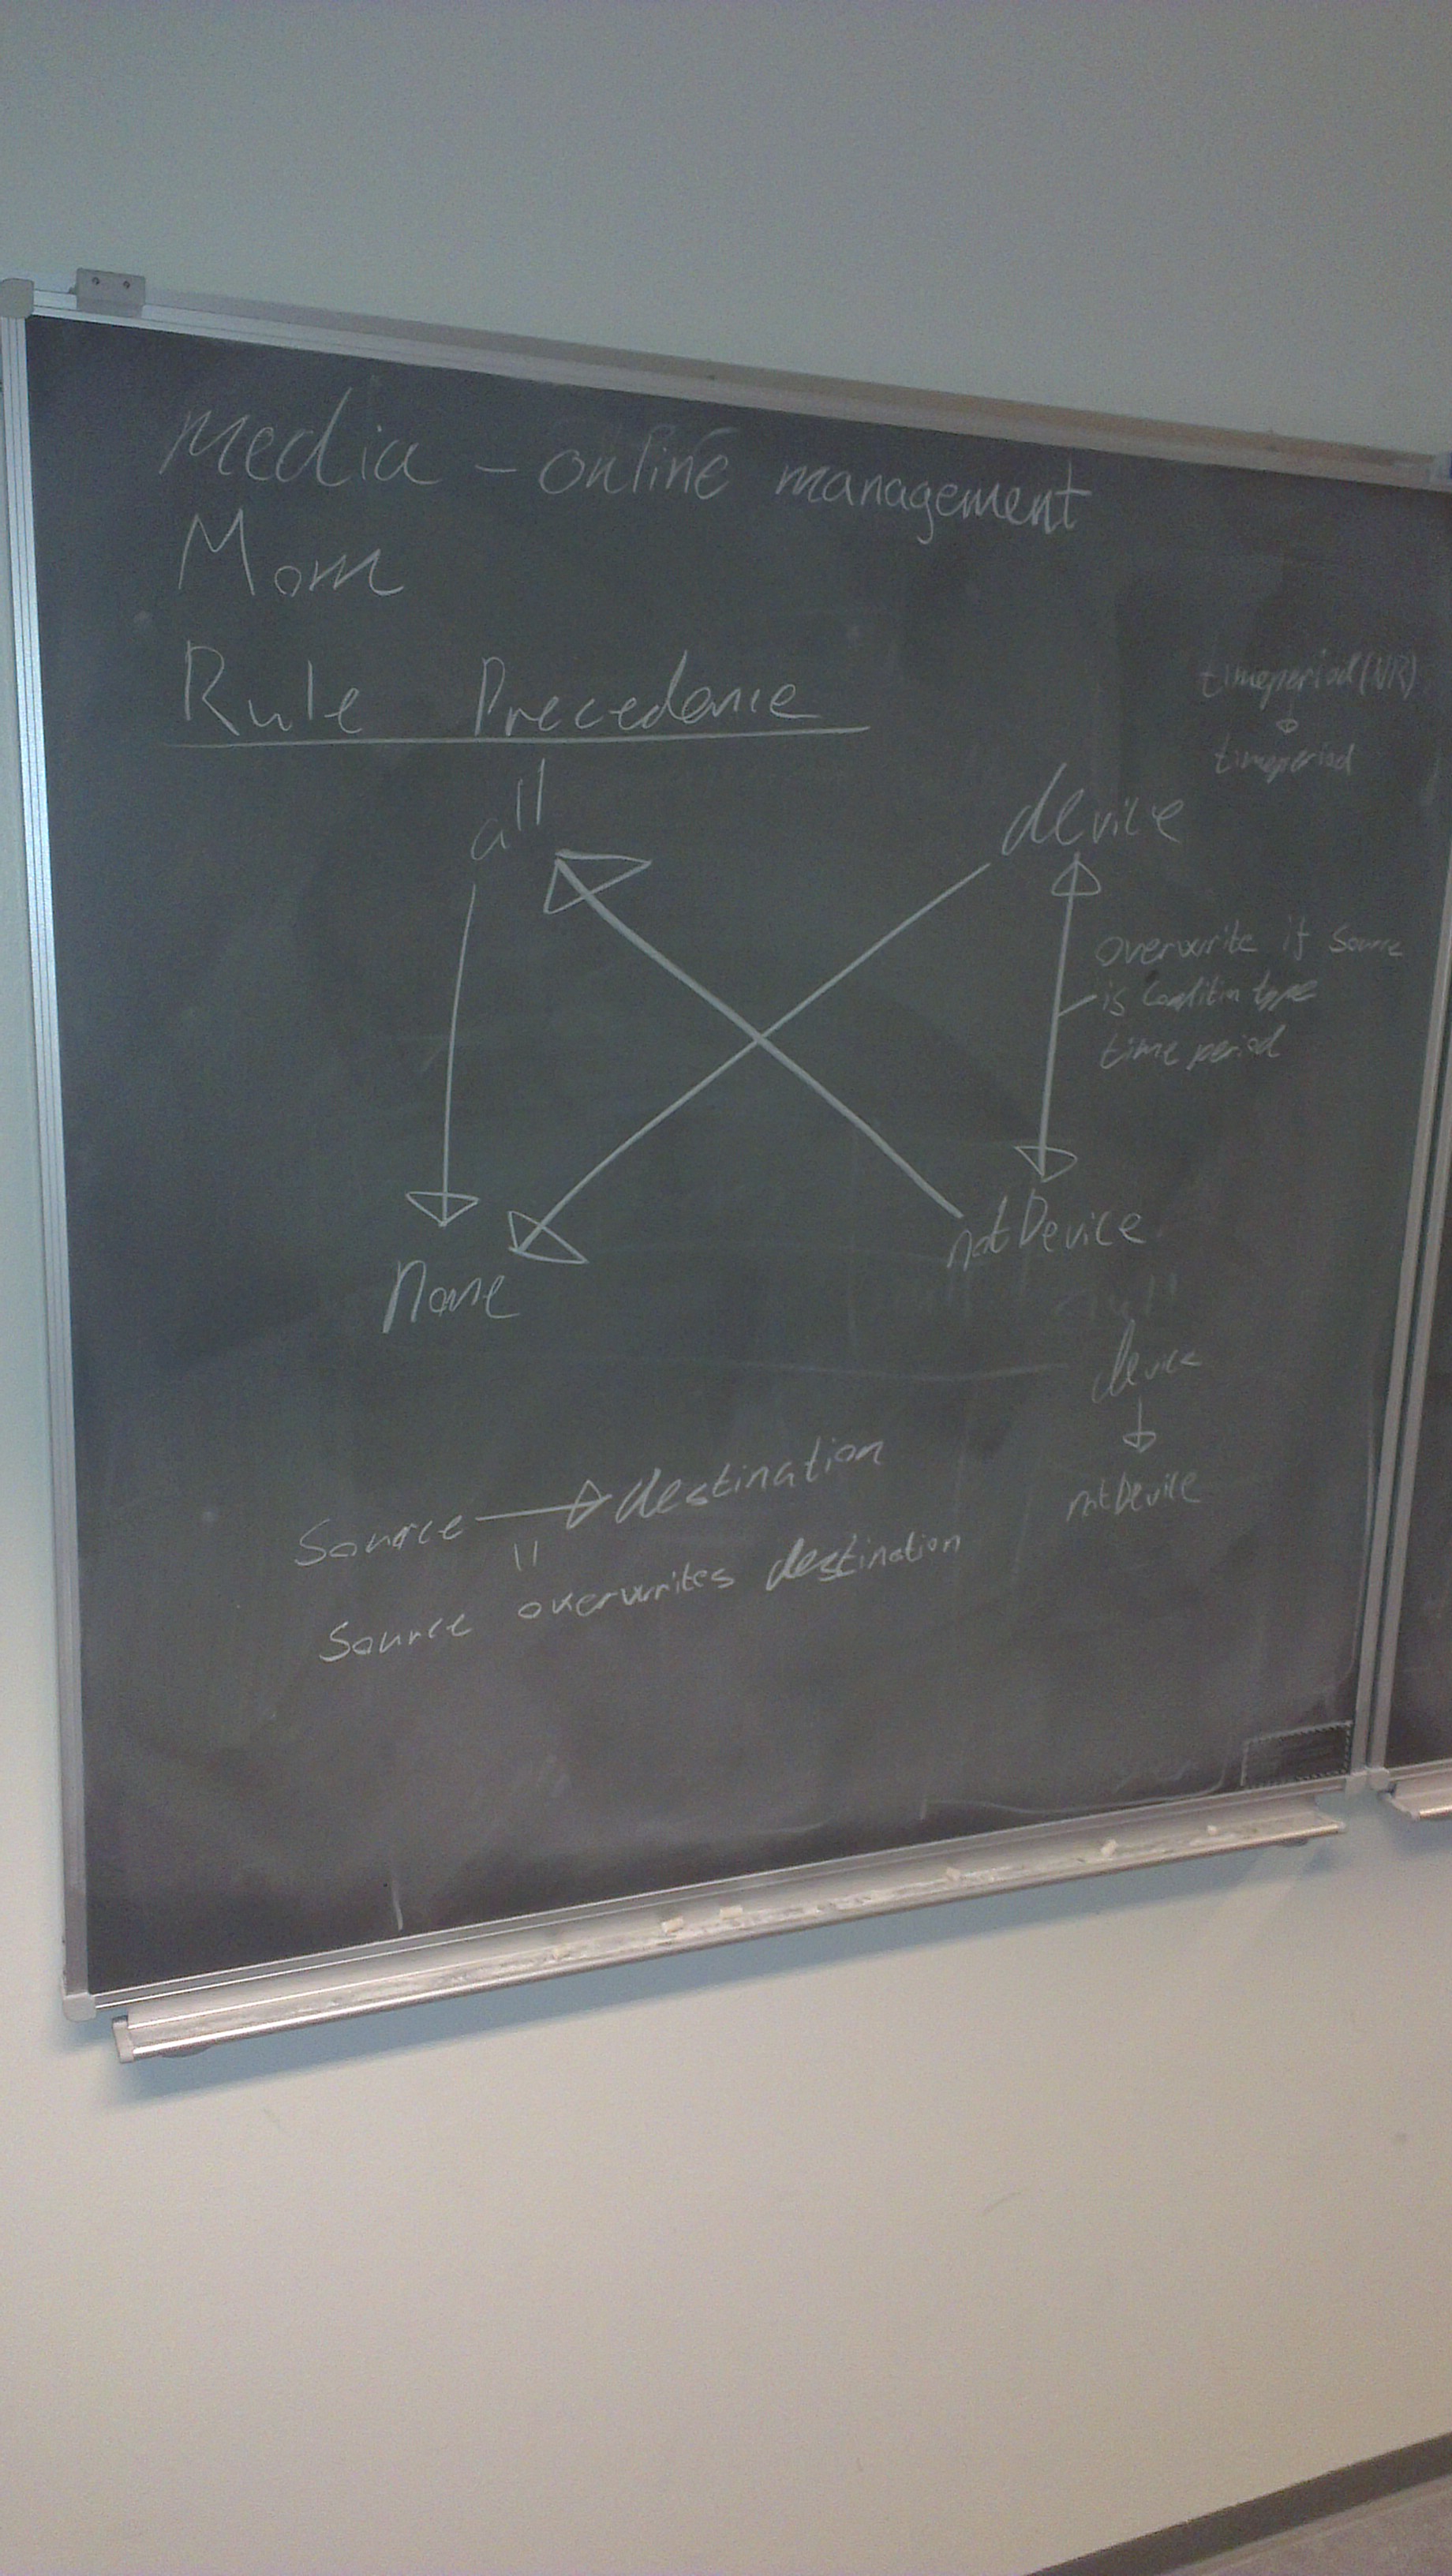 media - online management
Mom
Rule Precedence
timeperiod (NR)
timeperiod
all
device
overwrite if source
is condition type
time period
none
notDevice
device
notDevice
Source → destination
||
Source overwrites destination